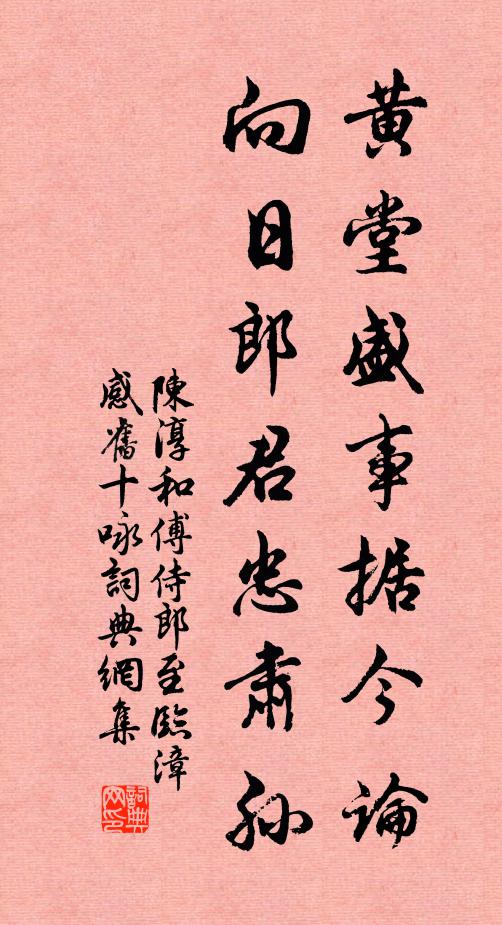 黄堂盛事据今論
向日郎君忠肅孫
陳淳和傅侍郎至臨漳
感舊十咏詞典網集
詞典网印